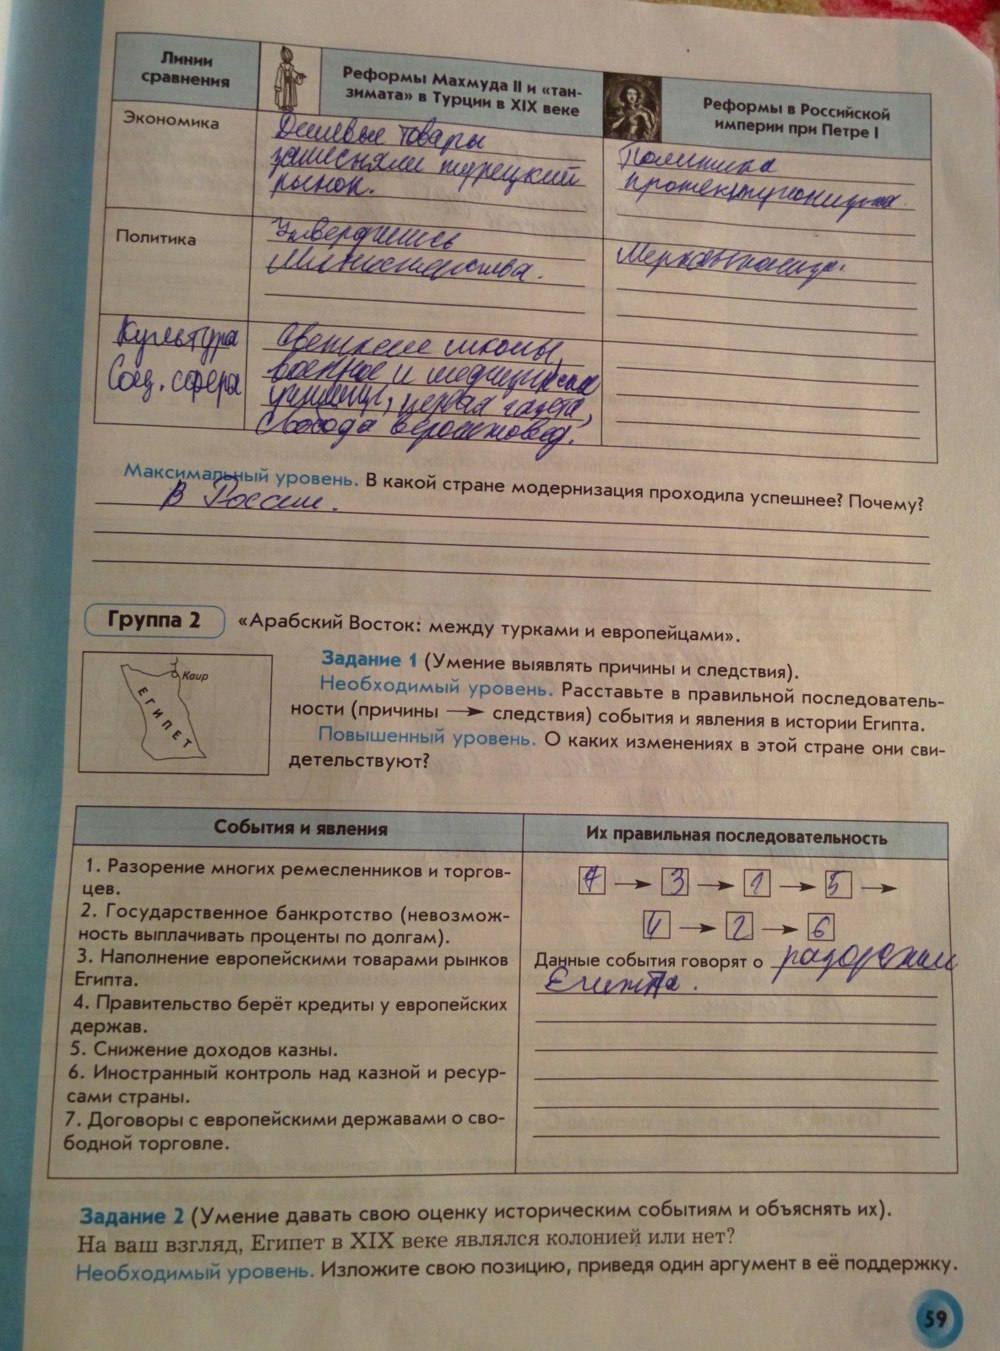 Линии
сравнения
Реформы Махмуда II и «тан-
зимата» в Турции в XIX веке
Реформы в Российской
империи при Петре I
Экономика
Дешевые товары
заместняли турецкий
рынок.
Политика
протекционизма.
Политика
Утвердились
Министерства.
Меркантилизм.
Культура
Соц. сфера
Светские школы,
военное и медицинское
училище, первая газета,
Свобода вероисповед.
Максимальный уровень. В какой стране модернизация проходила успешнее? Почему?
В России.
Группа 2
«Арабский Восток: между турками и европейцами».
Каир
ЕГИПЕТ
Задание 1 (Умение выявлять причины и следствия).
Необходимый уровень. Расставьте в правильной последователь-
ности (причины → следствия) события и явления в истории Египта.
Повышенный уровень. О каких изменениях в этой стране они сви-
детельствуют?
События и явления
Их правильная последовательность
1. Разорение многих ремесленников и торгов-
цев.
2. Государственное банкротство (невозмож-
ность выплачивать проценты по долгам).
3. Наполнение европейскими товарами рынков
Египта.
4. Правительство берёт кредиты у европейских
держав.
5. Снижение доходов казны.
6. Иностранный контроль над казной и ресур-
сами страны.
7. Договоры с европейскими державами о сво-
бодной торговле.
7 → 3 → 1 → 5 →
4 → 2 → 6
Данные события говорят о разорении
Египта.
Задание 2 (Умение давать свою оценку историческим событиям и объяснять их).
На ваш взгляд, Египет в XIX веке являлся колонией или нет?
Необходимый уровень. Изложите свою позицию, приведя один аргумент в её поддержку.
59